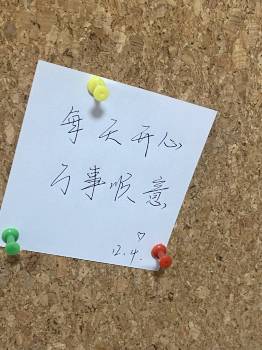 每天开心
万事顺意
♡
12.4.